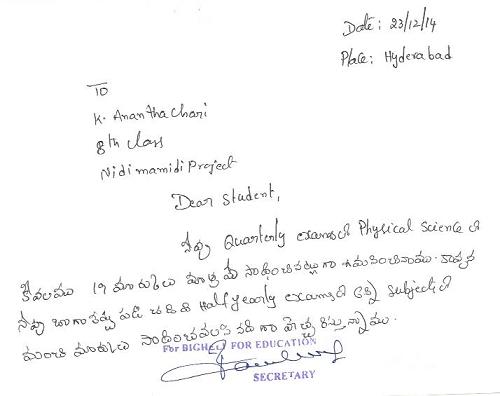 Date: 23/12/14
Place: Hyderabad
To
K. Anantha Chari
8th class
Nidimamidi Project
Dear Student,
నీవు Quarterly examsలో Physical Science లో
కేవలము 19 మార్కులు మాత్రమే సాధించినట్లుగా గమనించినాము. కావున
నీవు బాగా కష్టపడి చదివి Half yearly examsలో అన్ని subjectsలో
మంచి మార్కులు సాధించవలసినదిగా హెచ్చరిస్తున్నాము.
For BIGHELP FOR EDUCATION
SECRETARY